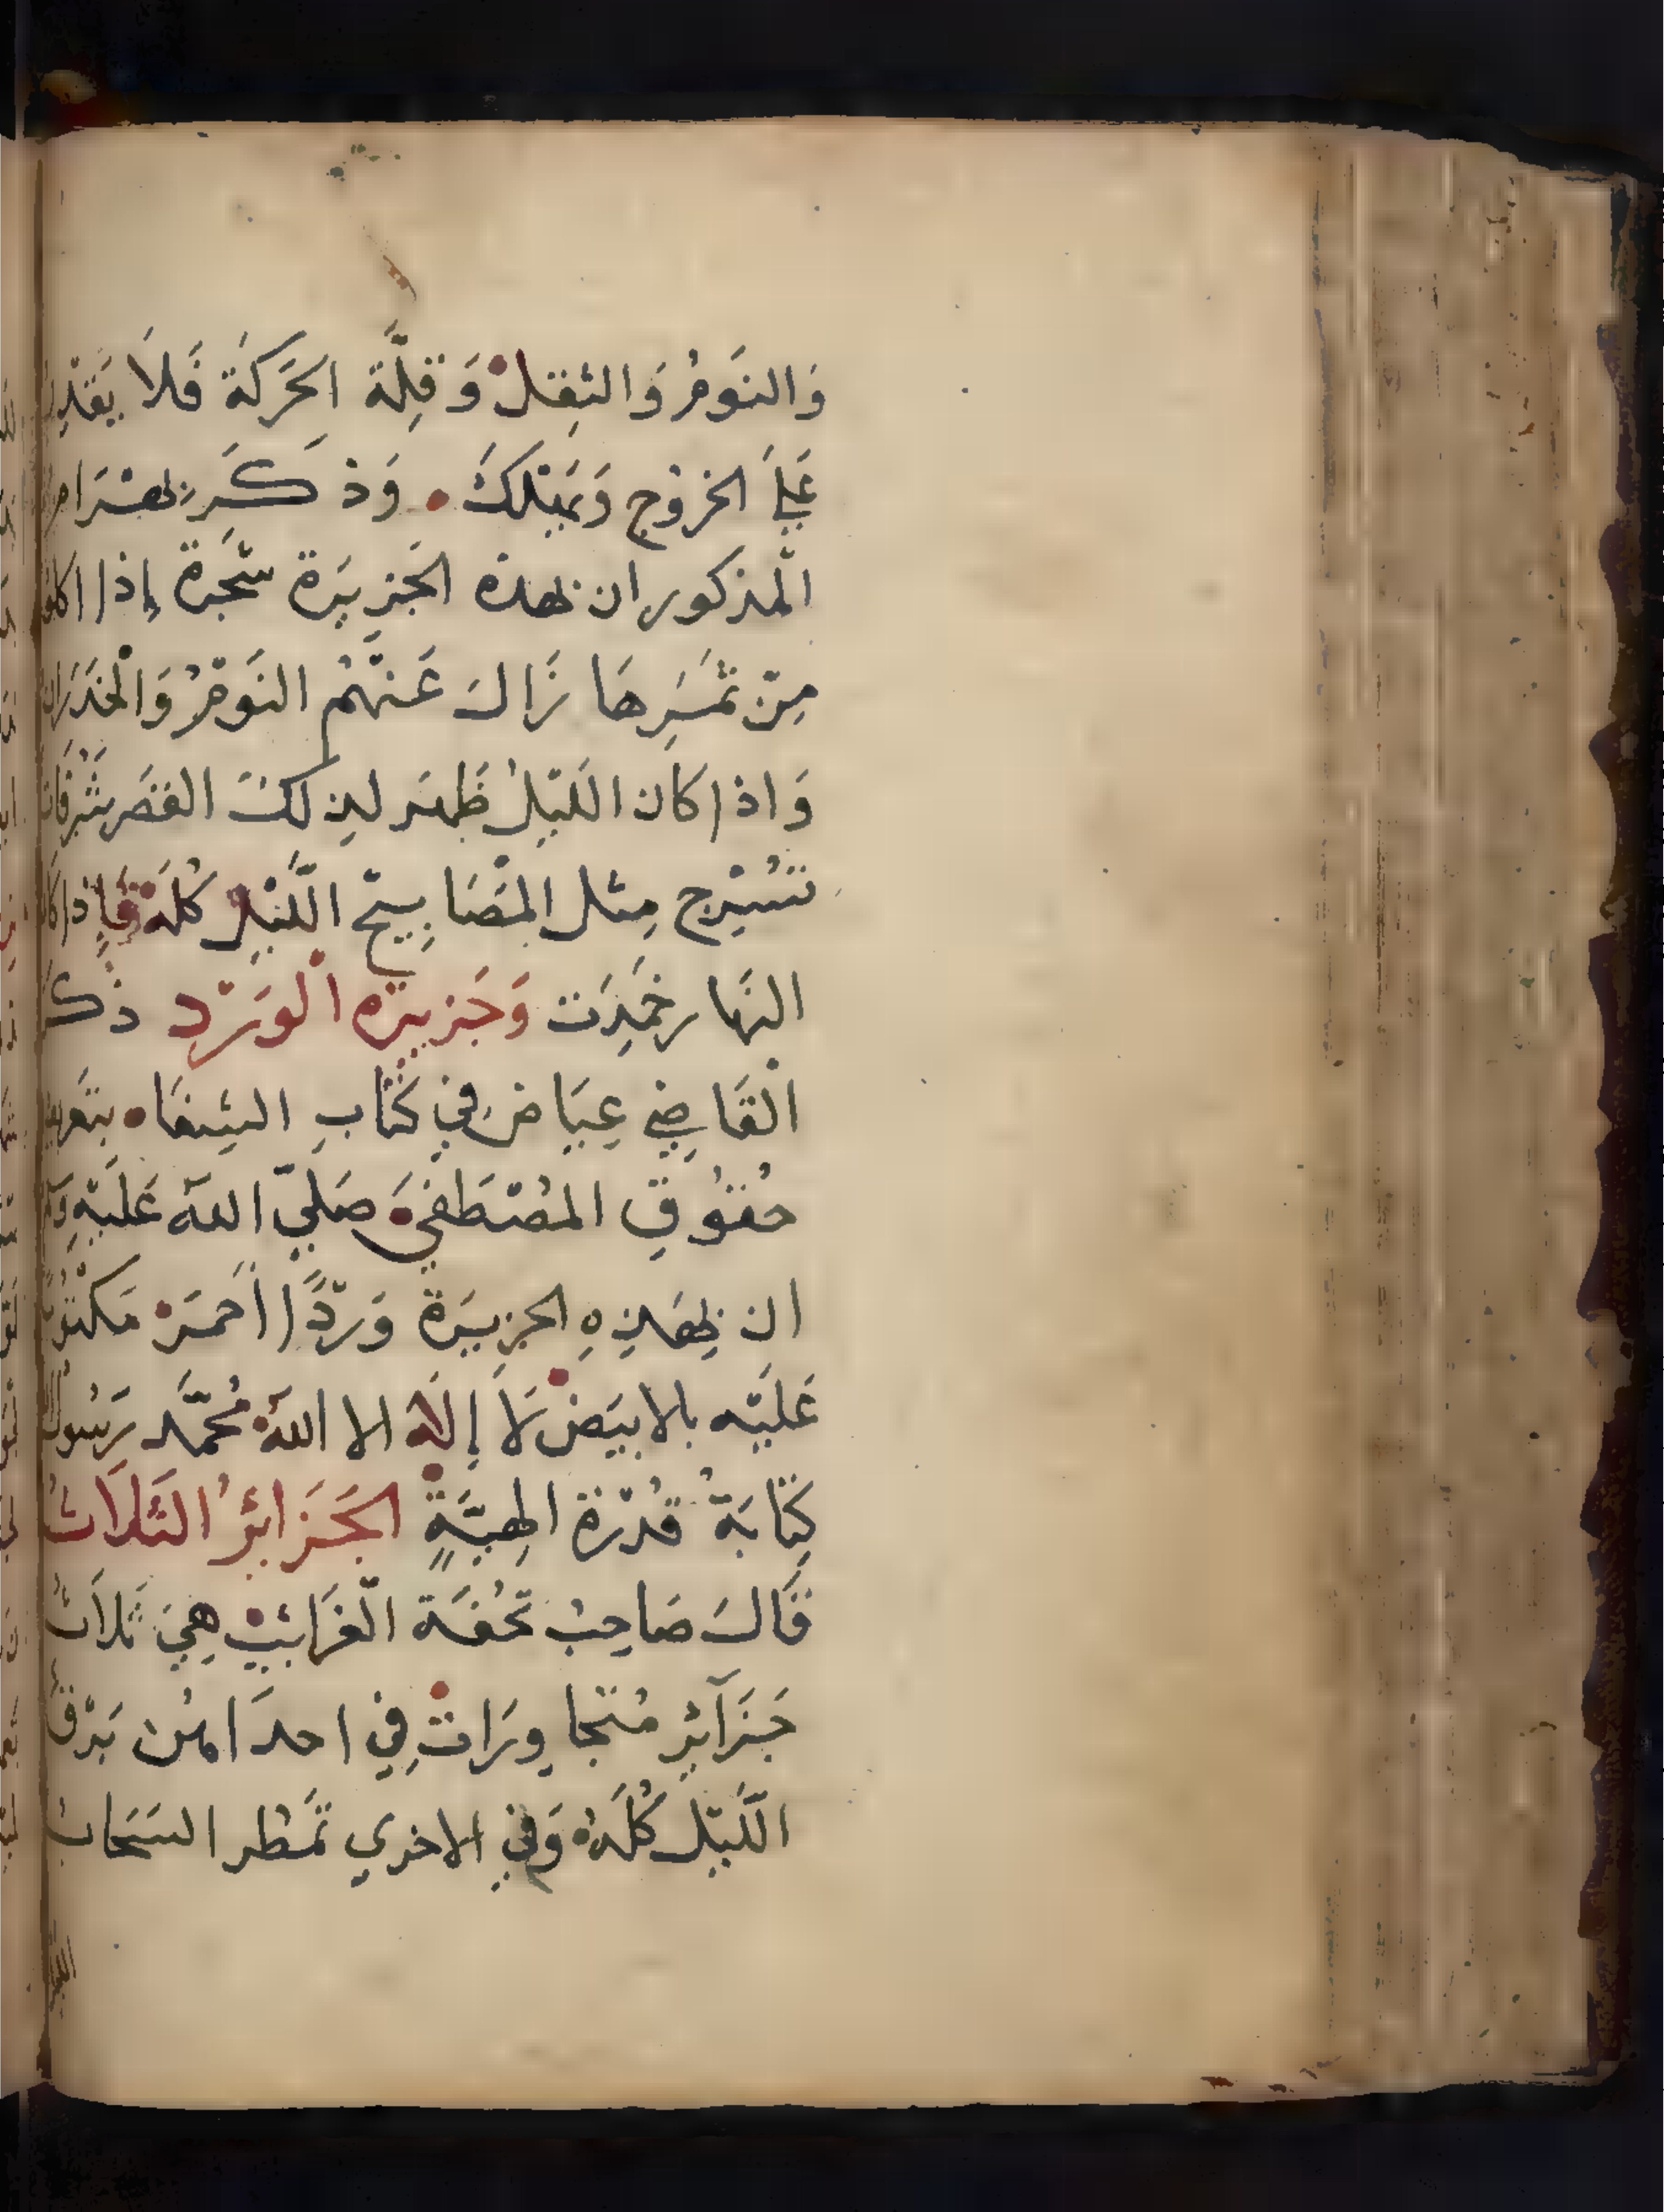 وَالنَوْمُ وَالثِقلْ وَقِلَّة الحَرَكَةُ فَلَا يَقْدِرُ
عَلَيَ الخروْج وَيَهْلَكَ . وَذكَرَ بهْرَام
الْمذكور ان بهذه الجَزيرَة شَجَرة إذا اكلوُا
مِنْ ثمَرِهَا زَالَ عَنْهُم النَوْمُ وَالْخدَرَان
وَاذا كان اللَيْلُ ظَهَر لذلكَ القصَر شُرْفَات
تُسْرِج مِثل المْصَابِيحْ اللَّيْلِ كُلَهْ فَإِذا كان
النَهار خَمِدَت وَجَزيرَه الْوَرْدِ ذكَر
الْقَاضِي عِيَاض في كتَابِ الشِفَاه بتَعريف
حُقُوقِ المُصْطَفيَ صَليّ اللهَ عَليْهِ وَ
ان بِهَذِهِ الجزيرَة وَرْدًا أحمَرْ مَكْتُوبٌ
عَلَيْه بالابيَضْ لَا إلَهَ الا اللهَ مُحَمَّد رَسُول
كِتَابَةْ قُدْرَة الهِيَّةٍ الجَزَائرُ الثَلَاثُ
قَالَ صَاحِبُ تحُفَة الْغَرَائبِ هِيَ ثَلَاثُ
جَزَآئرِ مُتَجاوِرَاتْ فِي احدَاهُن بَرْق
اللّيْلِ كُلَهُ وَفي الاخري تمَطر السَحَابُ